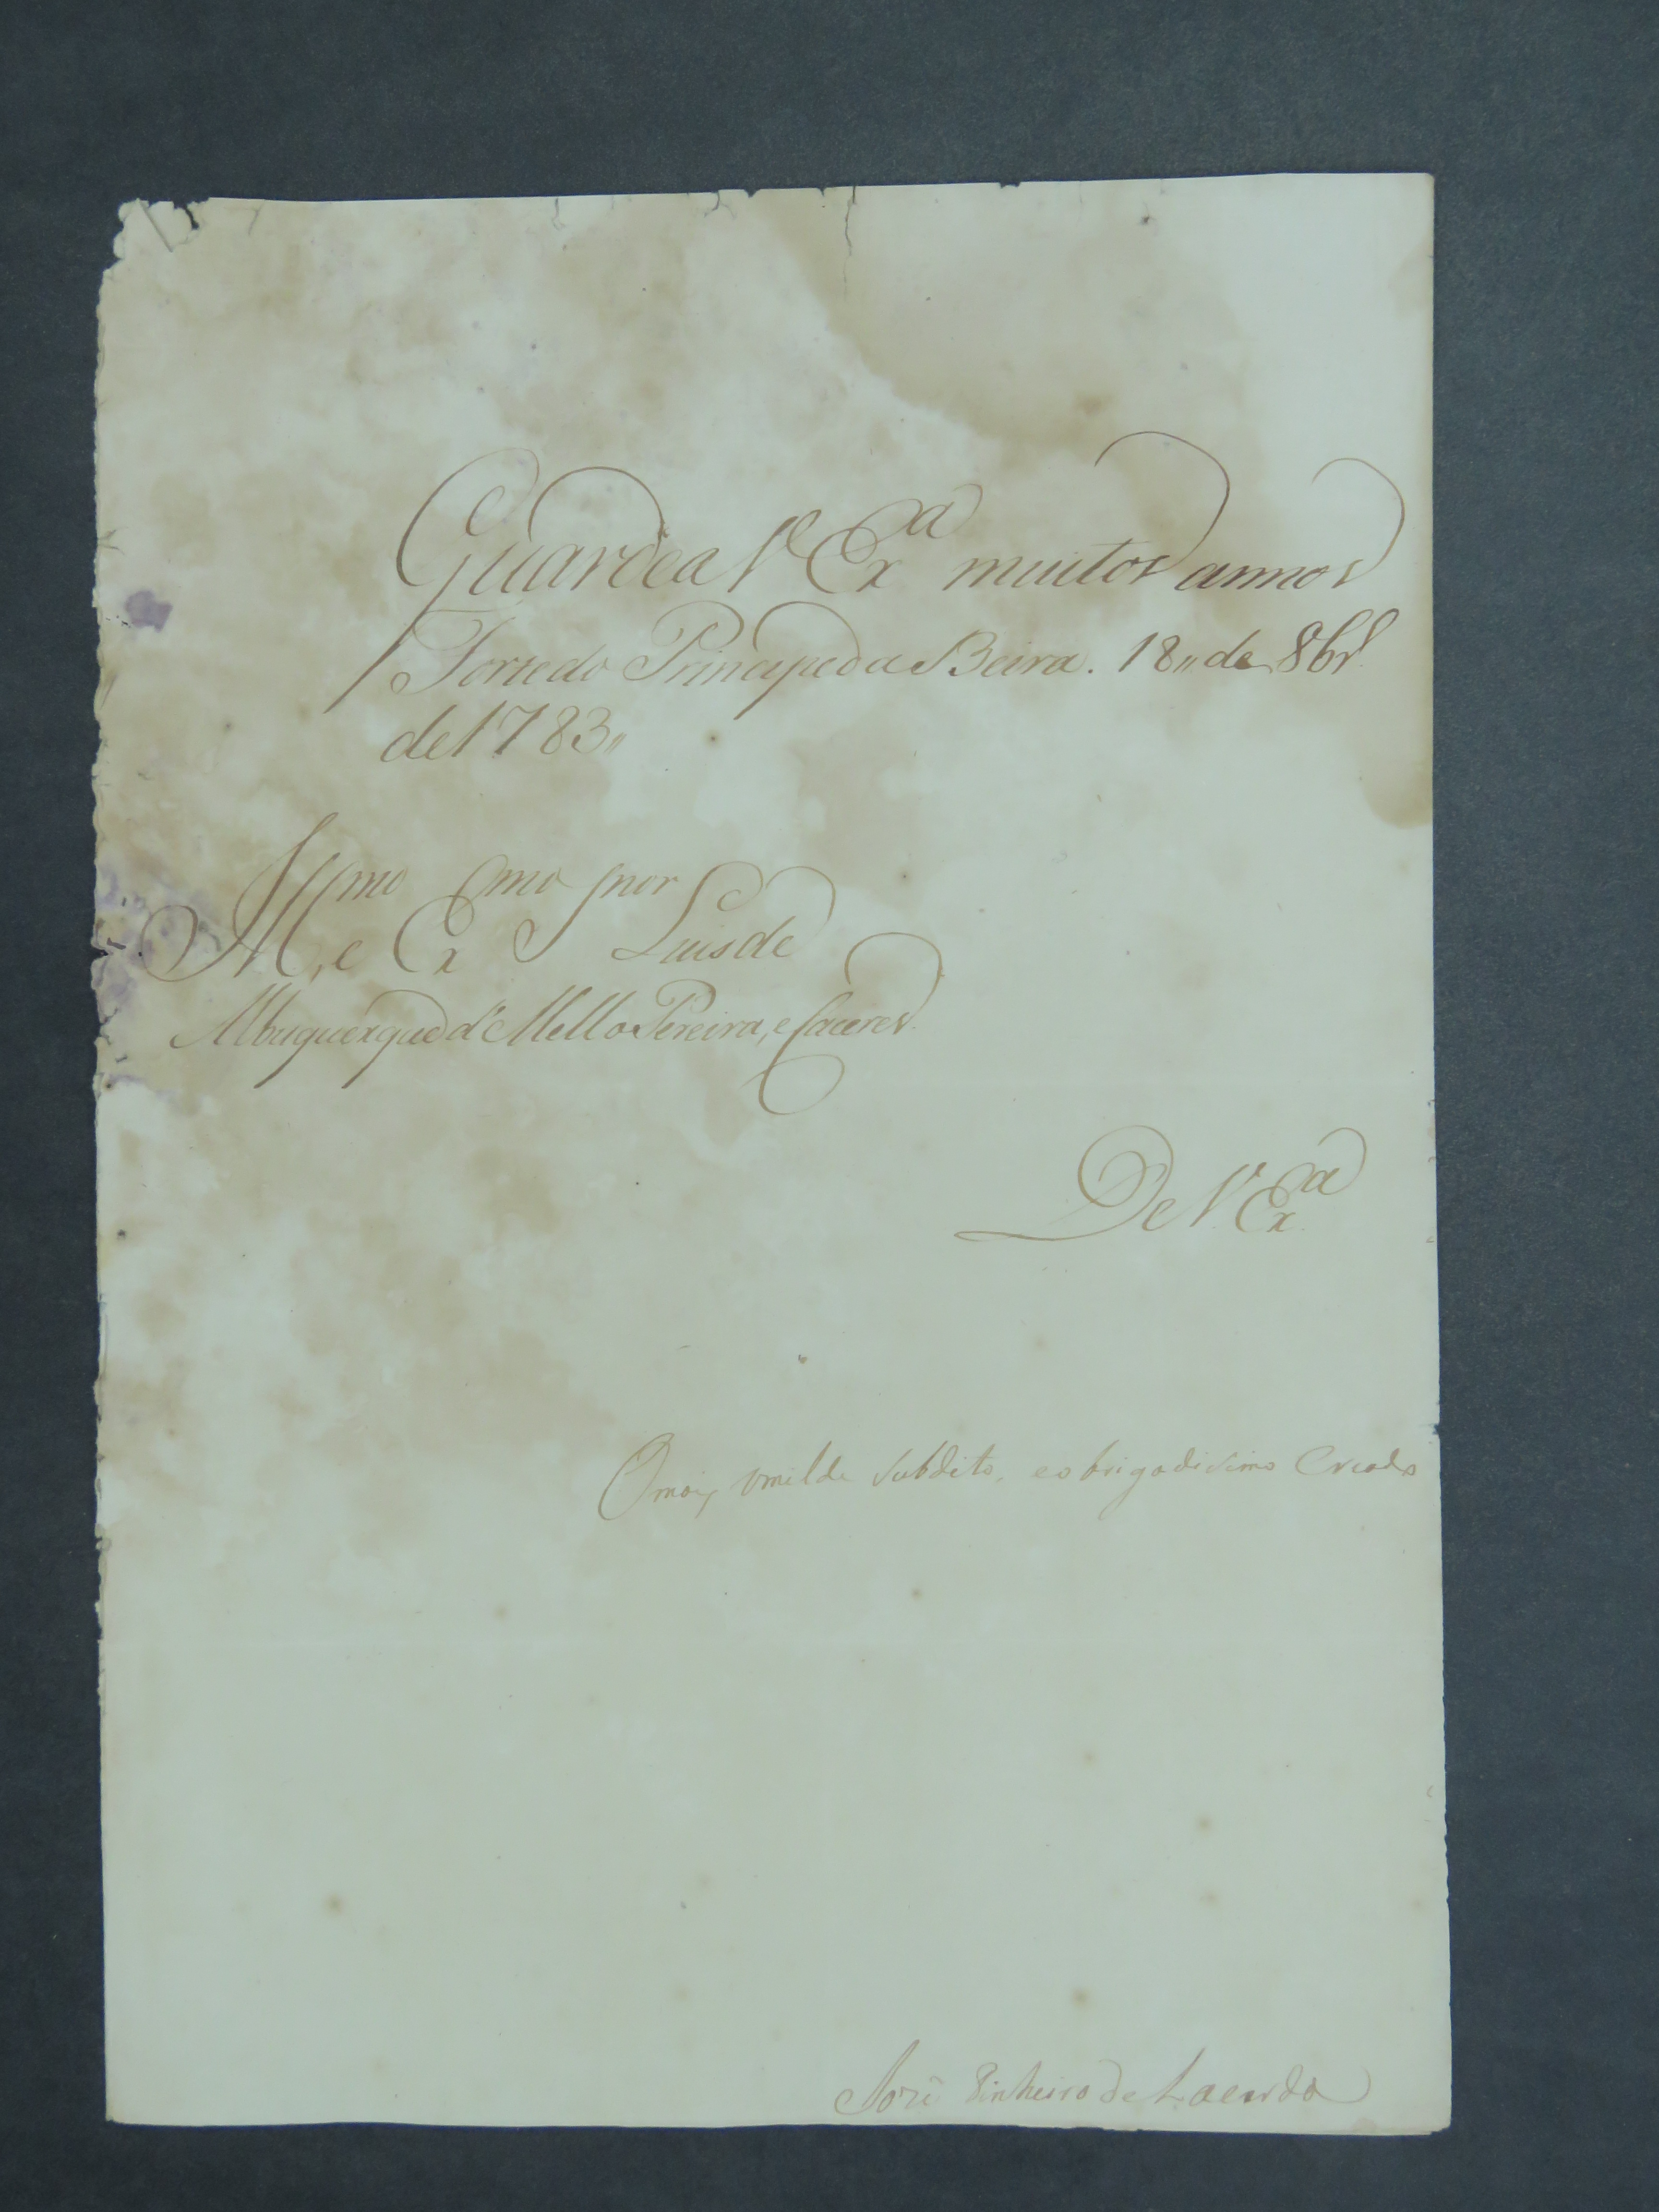 Guarde a V. Exa muitos annos
Forte do Principe da Beira. 18,, de 8br.
de 1783,,
Illmo, e Exmo Snor Luis de
Albuquerque d' Mello Pereira, e Caceres.
De V. Exa
O mais umilde subdito, e obrigadisimo Creado
José Pinheiro de Lacerda